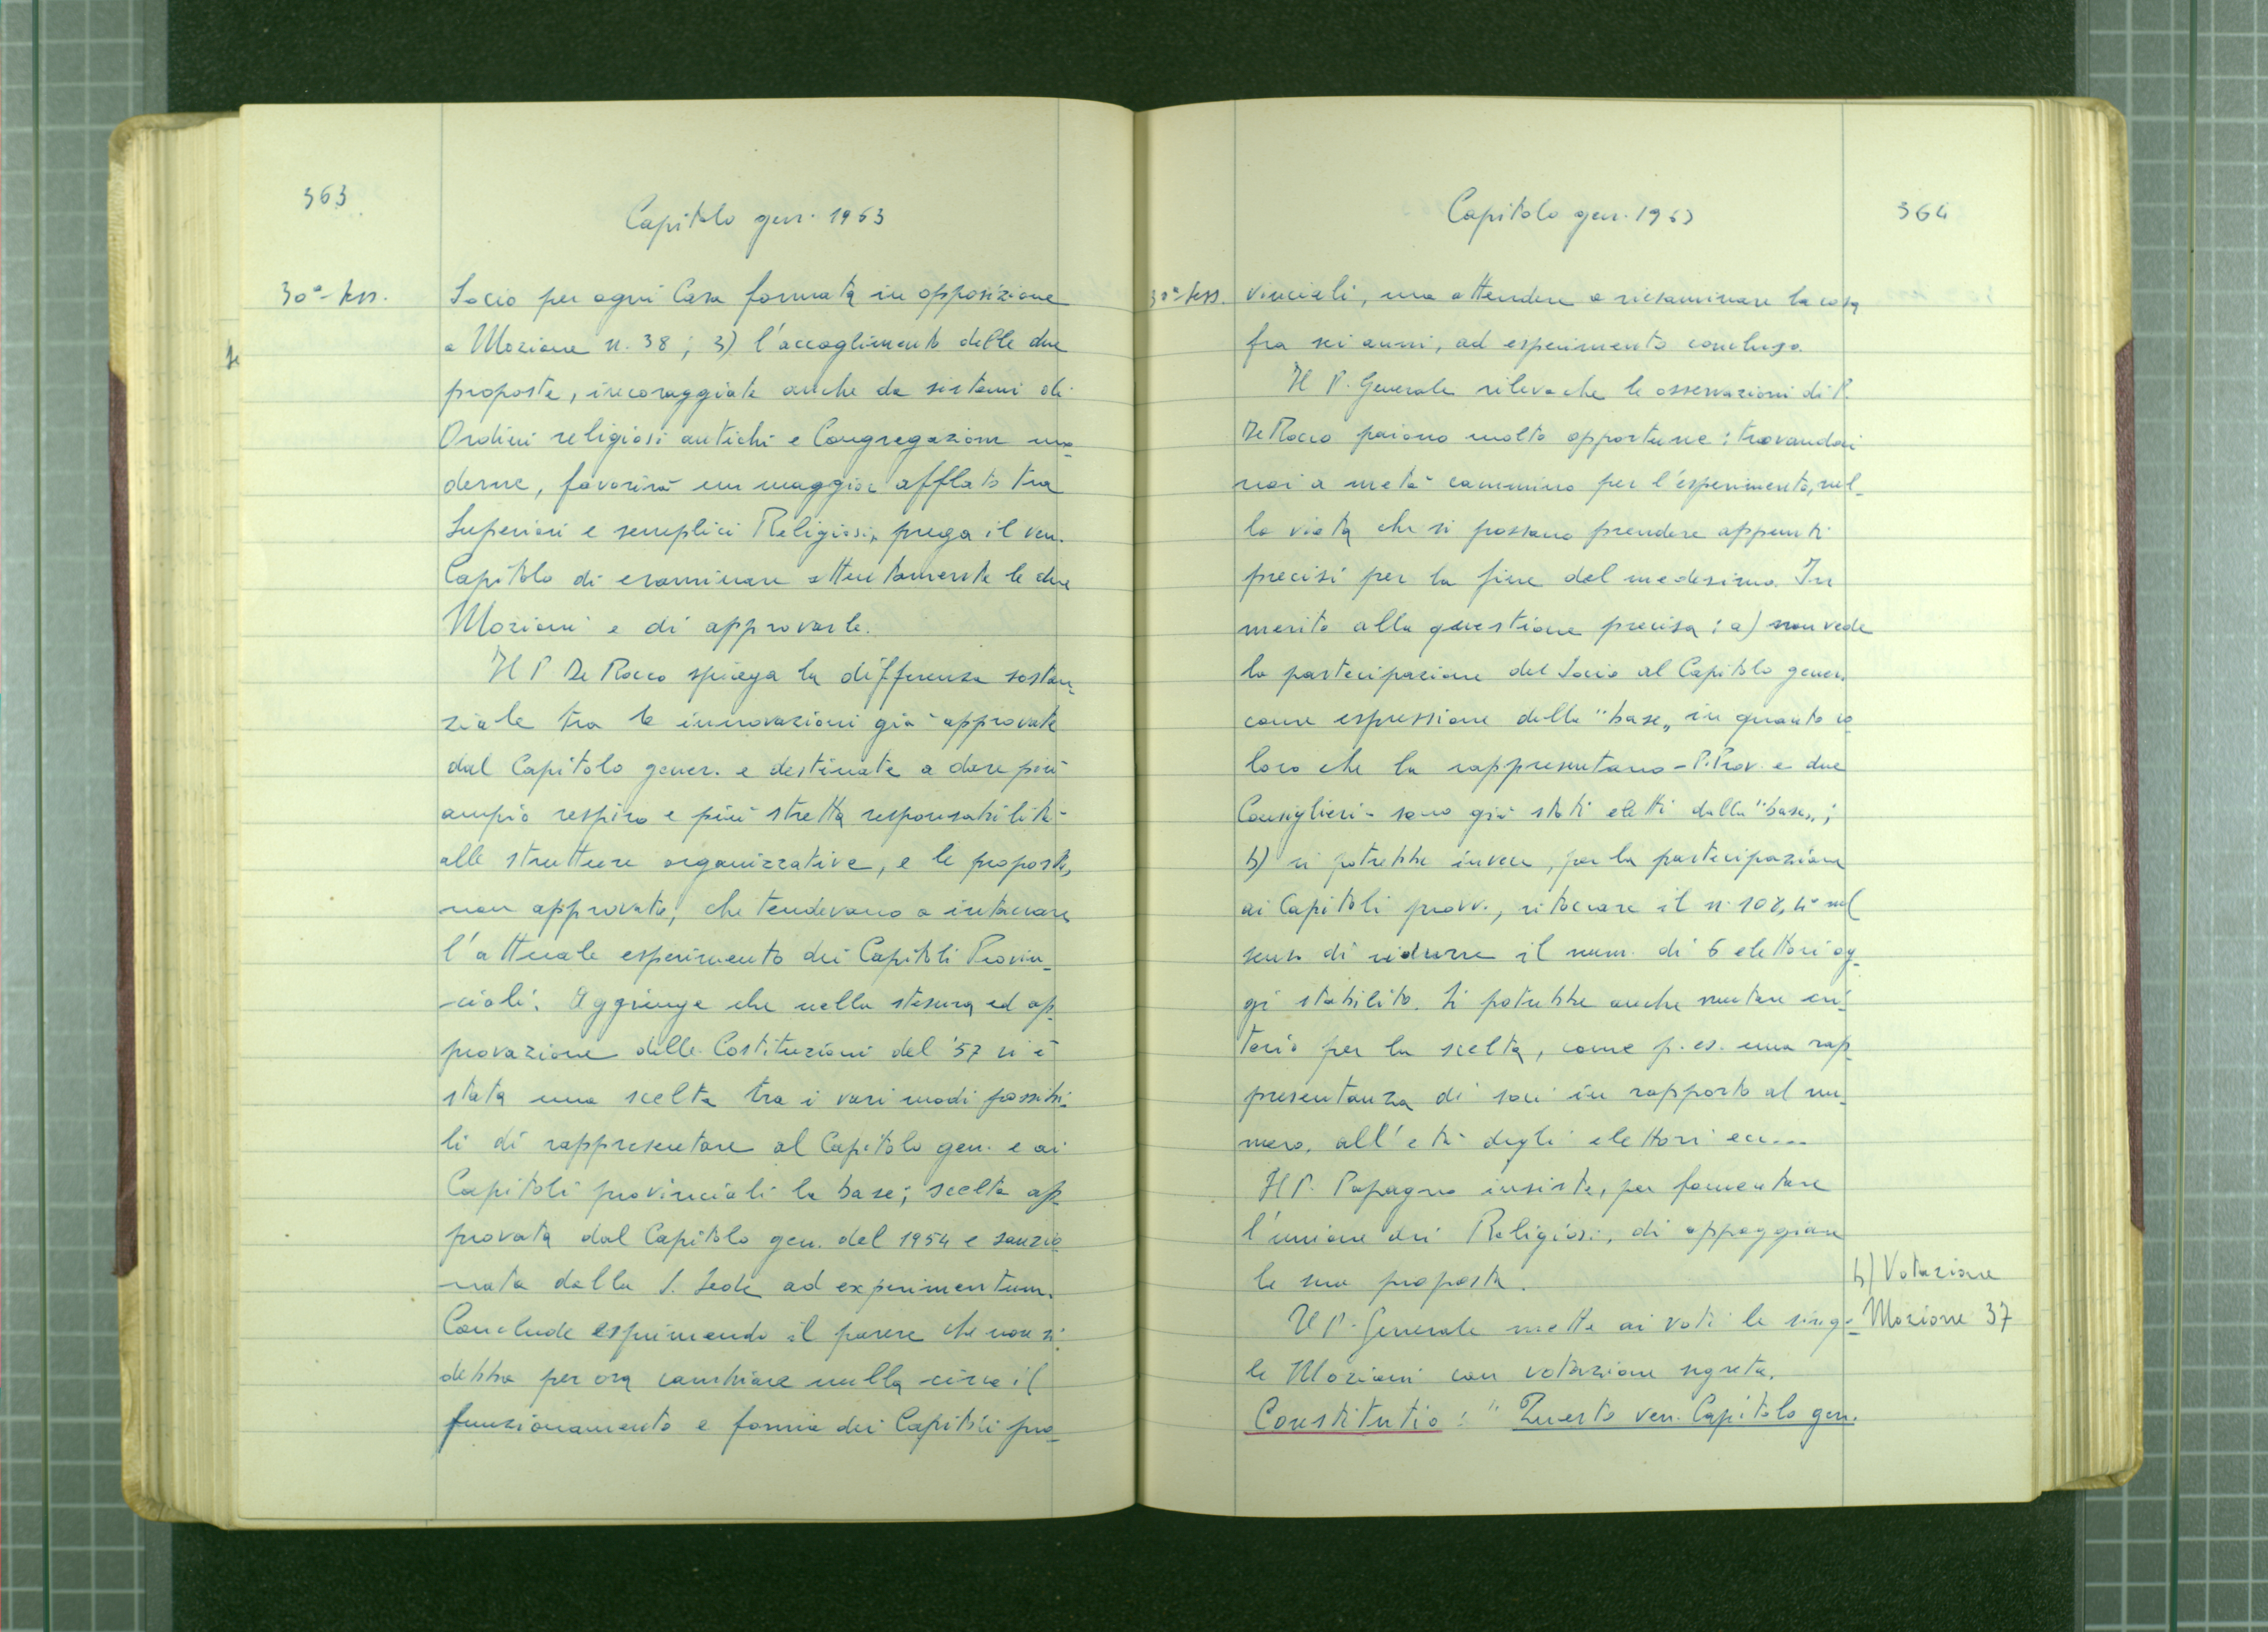 363
Capitolo gen. 1963
30ª Sess.
Socio per ogni Casa formata in opposizione
a Mozione n. 38; 3) l'accoglimento delle due
proposte, incoraggiate anche da sistemi di
Ordini religiosi antichi e Congregazioni mo-
derne, favorirà un maggior afflato tra
Superiori e semplici Religiosi, prega il ven.
Capitolo di esaminare attentamente le due
Mozioni e di approvarle.
Il P. De Rocco spiega la differenza sostan-
ziale tra le innovazioni già approvate
dal Capitolo gener. e destinate a dare più
ampio respiro e più stretta responsabilità
alle strutture organizzative, e le proposte,
non approvate, che tendevano a intaccare
l'attuale esperimento dei Capitoli Provin-
-ciali. Aggiunge che nella stesura ed ap-
provazione delle Costituzioni del '57 vi è
stata una scelta tra i vari modi possibi-
li di rappresentare al Capitolo gen. e ai
Capitoli provinciali la base; scelta ap-
provata dal Capitolo gen. del 1954 e sanzio-
nata dalla S. Sede ad experimentum.
Conclude esprimendo il parere che non si
debba per ora cambiare nulla circa il
funzionamento e forma dei Capitoli pro-
Capitolo gen. 1963
364
30ª Sess.
vinciali, ma attendere a riesaminare la cosa
fra sei anni, ad esperimento concluso.
Il P. Generale rileva che le osservazioni di P.
De Rocco paiono molto opportune: trovandosi
noi a metà cammino per l'esperimento, nul-
la vieta che si possano prendere appunti
precisi per la fine del medesimo. In
merito alla questione precisa: a) non vede
la partecipazione del Socio al Capitolo gener.
come espressione della "base„ in quanto co-
loro che la rappresentano - P. Prov. e due
Consiglieri - sono già stati eletti dalla "base„;
b) si potrebbe invece, per la partecipazione
ai Capitoli provv., ritoccare il n. 108, 4° nel
senso di ridurre il num. di 6 elettori og-
gi stabilito. Si potrebbe anche mutare cri-
terio per la scelta, come p. es. una rap-
presentanza di soci in rapporto al nu-
mero, all'età degli elettori ecc...
Il P. Papagno insiste, per fomentare
l'unione dei Religiosi, di appoggiare
le sue proposte.
b) Votazione
Il P. Generale mette ai voti le singo-
Mozione 37
le Mozioni con votazione segreta.
Constitutio: "Questo ven. Capitolo gen.